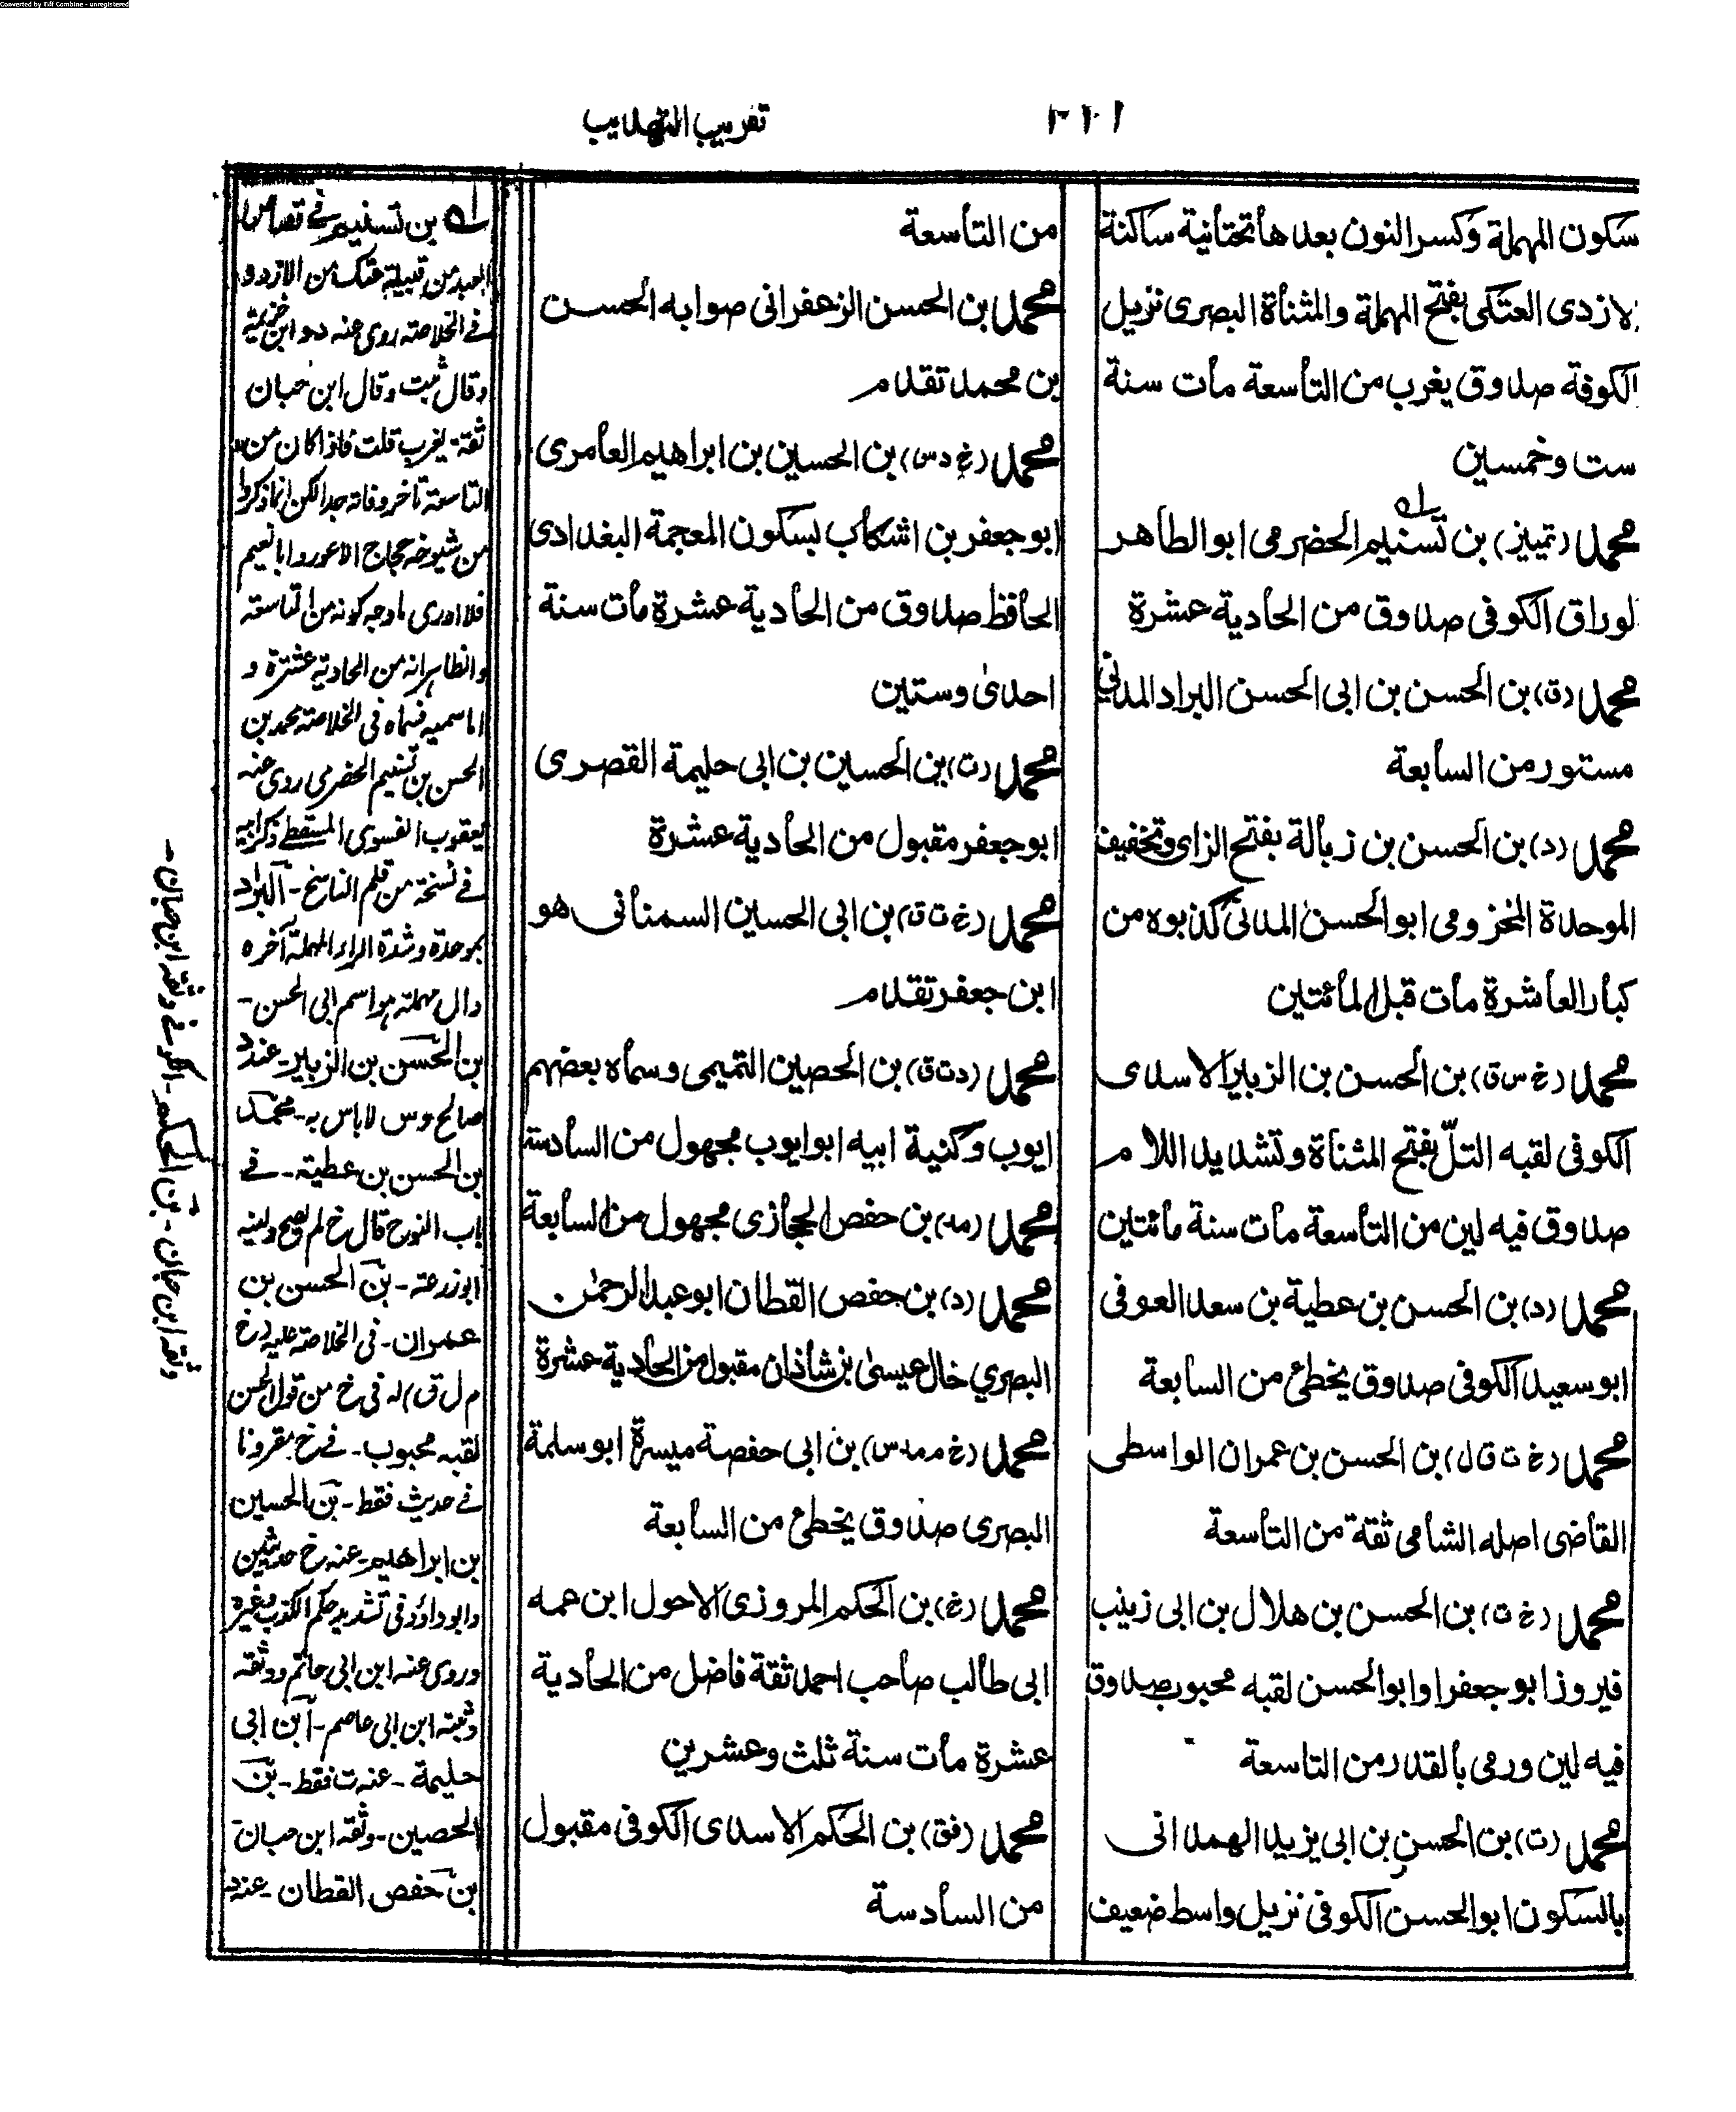 Converted by Tiff Combine - unregistered
تقريب التهذيب
٣١١
سكون المهملة وكسر النون بعدها تحتانية ساكنة
لازدى العتكى بفتح المهملة والمثناة البصرى نزيل
الكوفة صدوق يغرب من التاسعة مات سنة
ست وخمسين
محمد (تمييز) بن تسنيم الحضرمى ابو الطاهر
لوراق الكوفى صدوق من الحادية عشرة
محمد (ق) بن الحسن بن ابى الحسن البراد المدنى
مستور من السابعة
محمد (د) بن الحسن بن زبالة بفتح الزاى وتخفيف
الموحدة المخزومى ابو الحسن المدنى كذبوه من
كبار العاشرة مات قبل المائتين
محمد (خ س ق) بن الحسن بن الزبير الاسدى
الكوفى لقبه التلّ بفتح المثناة وتشديد اللام
صدوق فيه لين من التاسعة مات سنة مائتين
محمد (د) بن الحسن بن عطية بن سعد العوفى
ابو سعيد الكوفى صدوق يخطئ من السابعة
محمد (خ ت ق ل) بن الحسن بن عمران الواسطى
القاضى اصله الشامى ثقة من التاسعة
محمد (خ ت) بن الحسن بن هلال بن ابى زينب
فيروز ابو جعفر او ابو الحسن لقبه محبوب صدوق
فيه لين ورمى بالقدر من التاسعة
محمد (ت) بن الحسن بن ابى يزيد الهمدانى
بالسكون ابو الحسن الكوفى نزيل واسط ضعيف
من التاسعة
محمد بن الحسن الزعفرانى صوابه الحسن
بن محمد تقدم
محمد (خ د س) بن الحسين بن ابراهيم العامرى
ابو جعفر بن اشكاب بسكون المعجمة البغدادى
الحافظ صدوق من الحادية عشرة مات سنة
احدى وستين
محمد (ت) بن الحسين بن ابى حليمة القصرى
ابو جعفر مقبول من الحادية عشرة
محمد (خ ت ق) بن ابى الحسين السمنانى هو
ابن جعفر تقدم
محمد (د ت ق) بن الحصين التميمى وسماه بعضهم
ايوب وكنية ابيه ابو ايوب مجهول من السادسة
محمد (مد) بن حفص الحجازى مجهول من السابعة
محمد (د) بن حفص القطان ابو عبد الرحمن
البصري خال عيسى بن شاذان مقبول من الحادية عشرة
محمد (خ م مد س) بن ابى حفصة ميسرة ابو سلمة
البصرى صدوق يخطئ من السابعة
محمد (خ) بن الحكم المروزى الاحول ابن عمه
ابى طالب صاحب احمد ثقة فاضل من الحادية
عشرة مات سنة ثلث وعشرين
محمد (فق) بن الحكم الاسدى الكوفى مقبول
من السادسة
له بن تسنيم فى
من قبيلة عتك من الازد و
فى الخلاصة روى عنه د و ابن خزيمة
وقال ثبت وقال ابن حبان
ثقة يغرب قلت فاذا كان من
التاسعة تاخر وفاته جدا لكن انما ذكروا
من شيوخه حجاج الاعور وابا نعيم
فلا ادرى ما وجه كونه من التاسعة
والظاهر انه من الحادية عشرة و
اما سميه فسماه فى الخلاصة محمد بن
الحسن بن تسنيم الحضرمى روى عنه
يعقوب الفسوى
فى نسخة من قلم الناسخ - البراد
بموحدة وشدة الراء المهملة آخره
دال مهملة هو اسم ابى الحسن -
بن الحسن بن الزبير - عند
صالح وس لا باس به - محمد
بن الحسن بن عطية - فى
باب النوح قال خ لم يصح ولينه
ابو زرعة - بن الحسن بن
عمران - فى الخلاصة عليه (خ
م ل ق) له فى خ من قول الحسن
لقبه محبوب - فى خ مقرونا
فى حديث فقط - بن الحسين
بن ابراهيم - عنه خ حديثين
وابو داؤد فى تشديد حكم الكذب وغيره
وروى عنه ابن ابى حاتم ووثقه
وثبته ابن ابى عاصم - ابن ابى
حليمة - عنه ت فقط - بن
الحصين - وثقه ابن حبان
بن حفص القطان - عنه
وثقه ابن حبان - بن الحكم - وثقه ابن حبان -